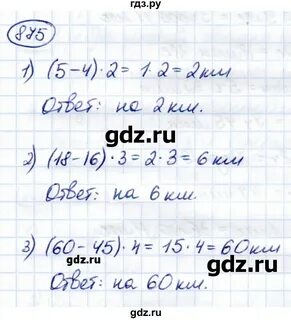 гдз.рф
875
1) (5-4)·2=1·2=2км
Ответ: на 2 км.
gdz.ru
2) (18-16)·3=2·3=6 км
Ответ: на 6 км.
gdz.ru
3) (60-45)·4=15·4=60км
Ответ: на 60 км.
gdz.ru